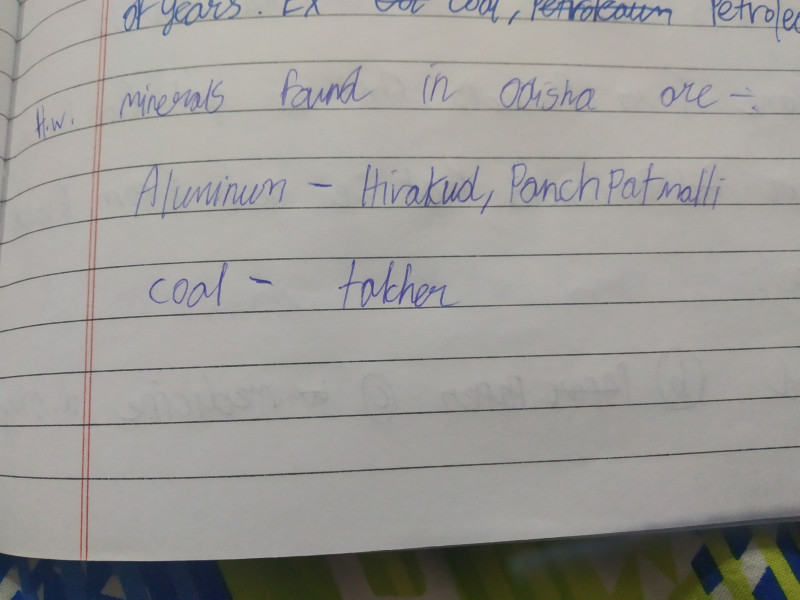 of years. Ex coal, Petroleoum Petroleo
minerals found in Odisha are -:
H.W.
Aluminum - Hirakud, PanchPatmalli
coal - talcher